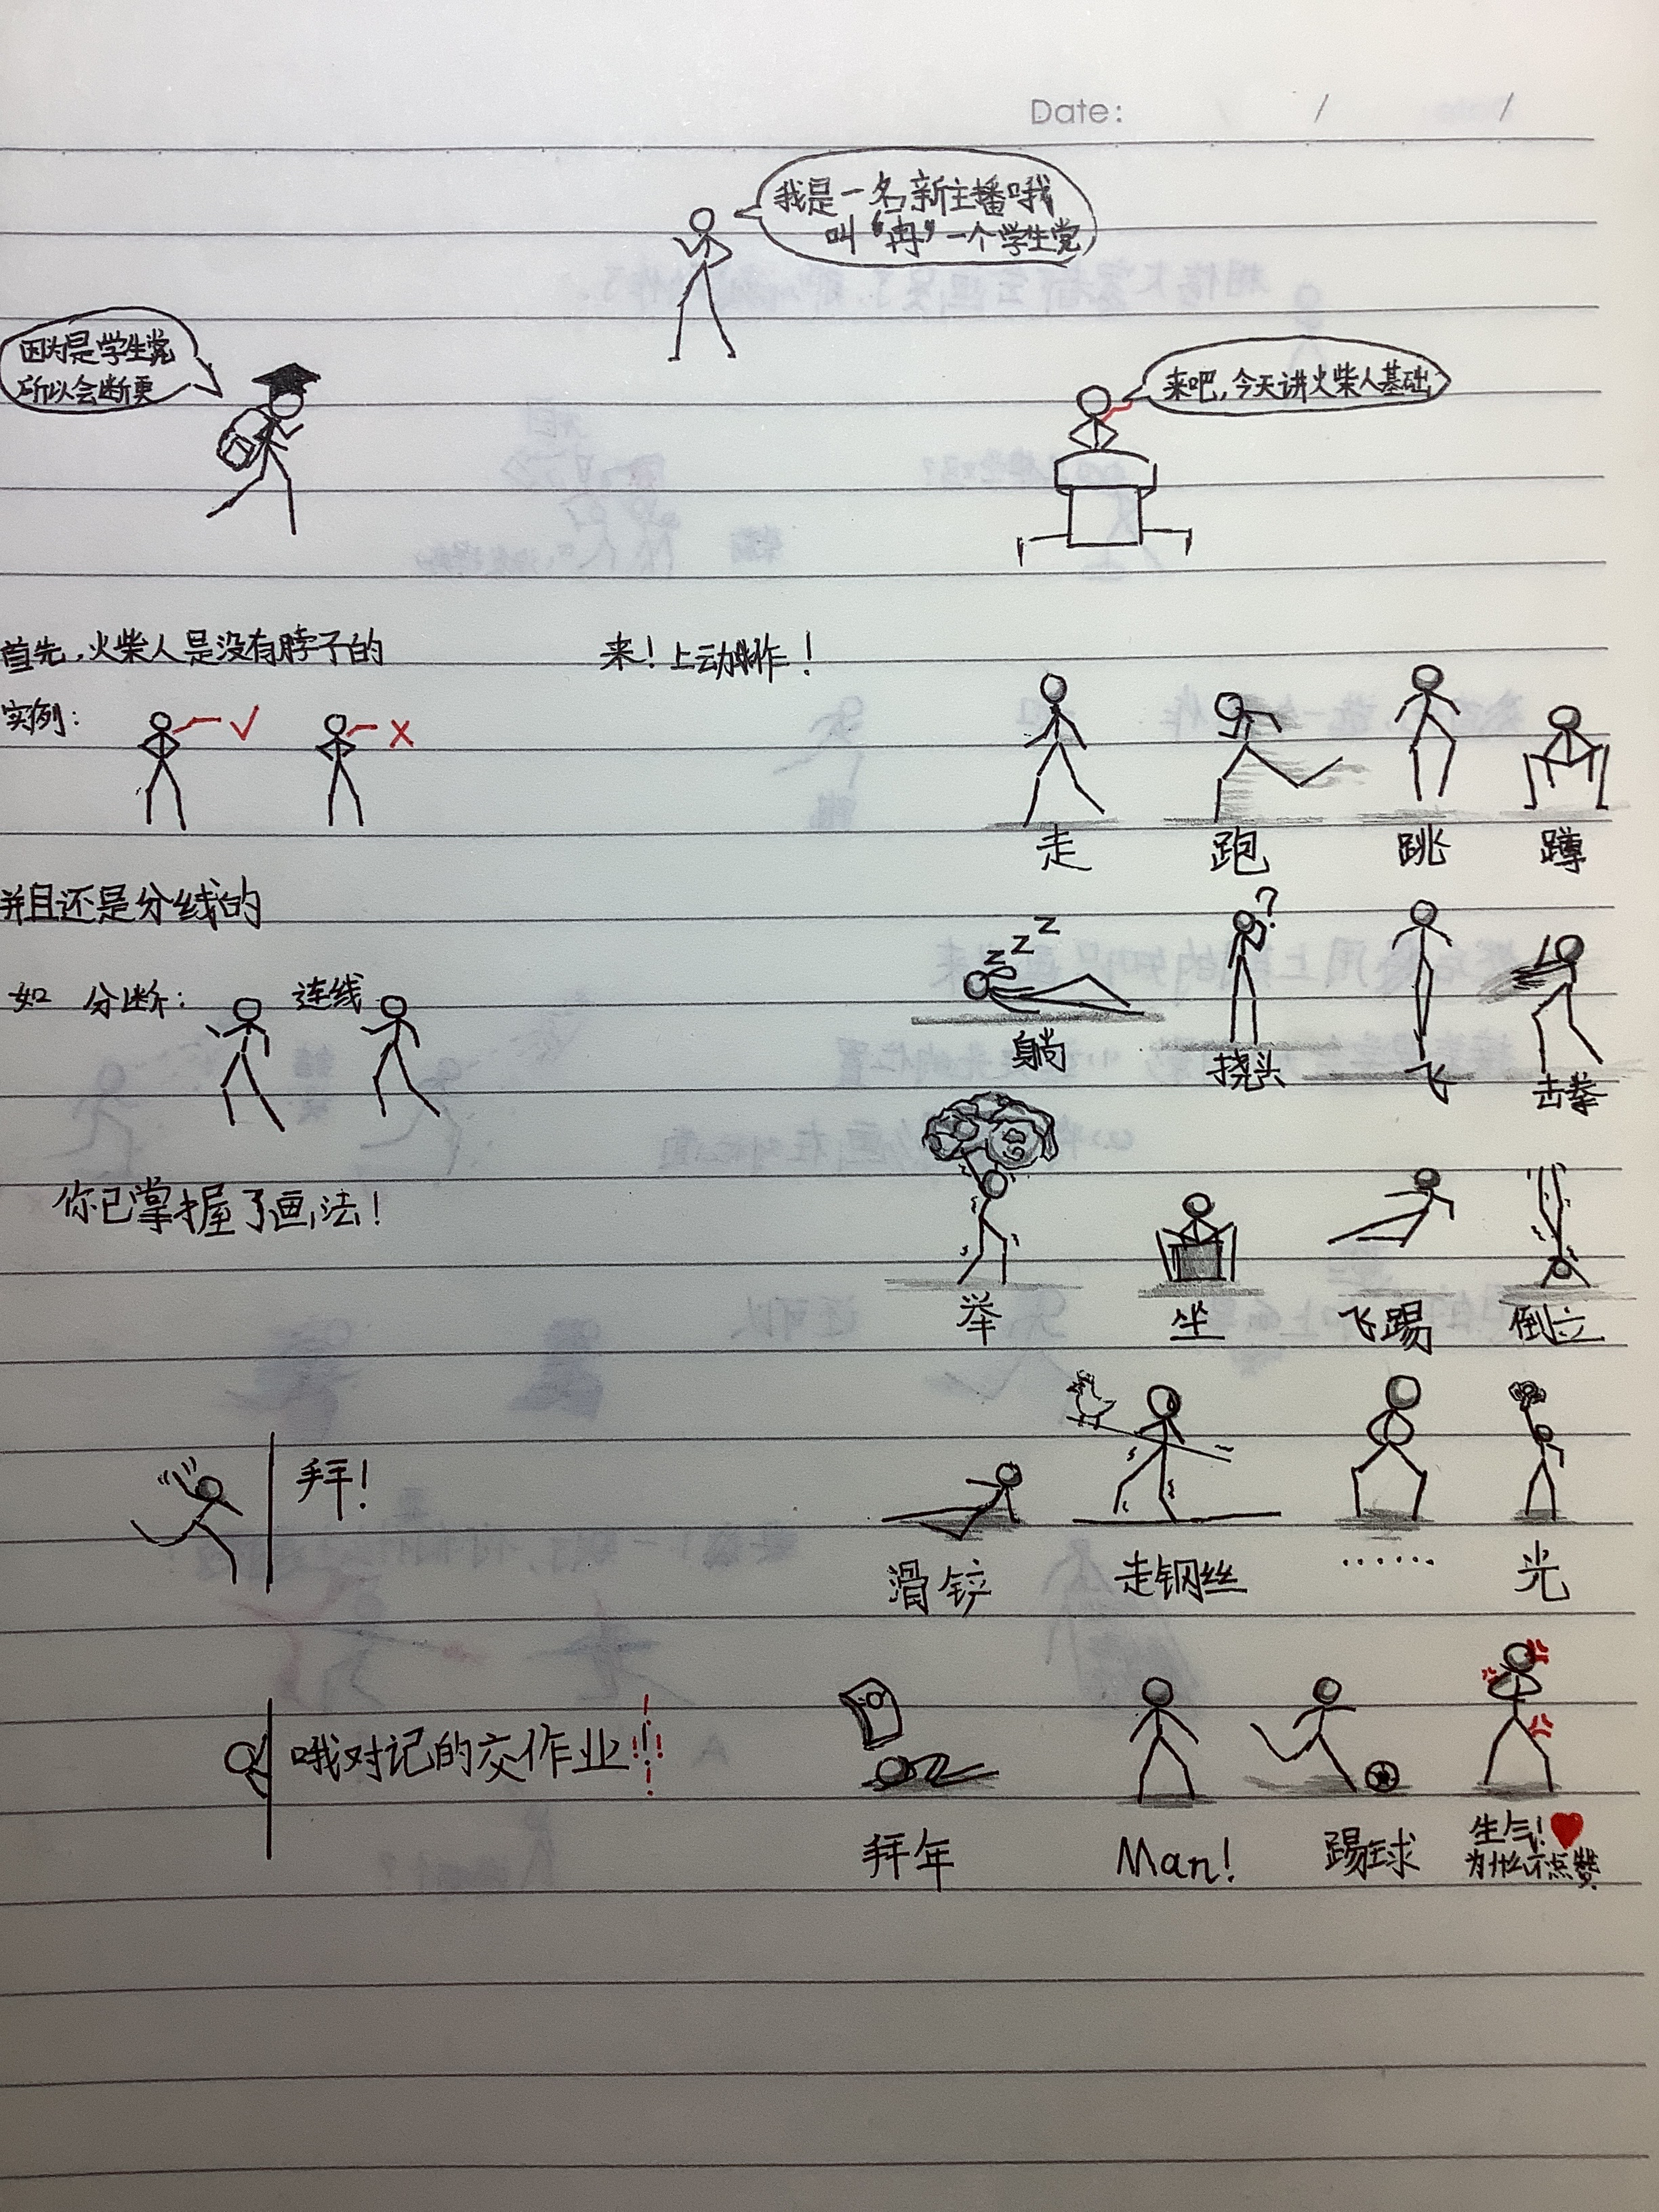 Date: / /
我是一名新主播哦
叫“冉”一个学生党
因为是学生党
所以会断更
来吧,今天讲火柴人基础
首先,火柴人是没有脖子的
来!上动作!
实例:
√ ×
走 跑 跳 蹲
并且还是分线的
如 分断: 连线
z z z ?
躺 挠头 飞 击拳
你已掌握了画法!
举 坐 飞踢 倒立
拜!
滑铲 走钢丝 …… 光
哦对记的交作业!!!
拜年 Man! 踢球 生气!
为什么不点赞